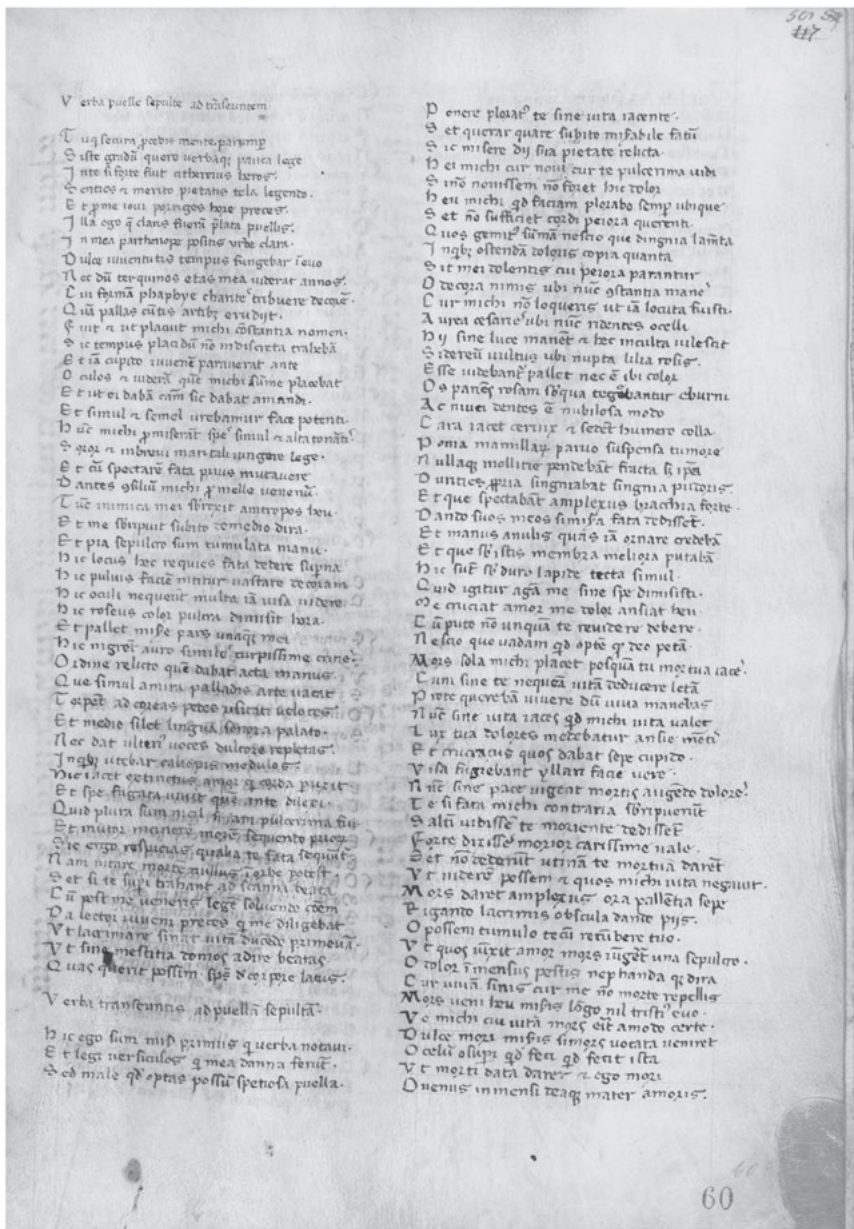 501
117
Verba puelle sepulte ad trãseuntem.
Tu q̃ secura p̃cedis mente parump̃
Siste gradũ quero verbaq̃ pauca lege
In te si forte fuit etherrius heros.
Senties et merito pietatis tela legendo.
Et p̃ me ioui porrigos hore preces.
Illa ego q̃ claris fuerã p̃lata puellis.
In mea parthenope positis urbe clara.
Dulce iuuentutis tempus fungebar ĩ euo
Nec dũ ter quinos etas mea uiderat annos.
Cui formã phaphye charite tribuere decorẽ.
Quã pallas cũtis artibȝ erudijt.
Fuit et ut placuit michi cõstantia nomen.
Sic tempus placidũ nõ indiscreta trahebã
Et iã cupido iuuenẽ parauerat ante
Oculos et uiderã quẽ michi sũme placebat
Et ut ei dabã cam̃ sic dabat amandi.
Et simul et semel urebamur face potenti.
Hũc michi p̃miserãt spe simul et alta tonãti
Soror et in breui maritali iungere lege.
Et cũ spectarẽ fata prius mutauere
Dantes ↄsiliũ michi p̃ melle uenenũ.
Tũc inimica mei sbrexit antropos heu.
Et me sbripuit subito de medio dira.
Et pia sepulcro sum tumulata manu.
Hic locus hec requies fata dedere sup̃na
Hic puluis faciẽ nititur uastare decoram
Hic oculi nequeũt multa iã uisa uidere
Hic roseus color pulcra dimisit hora.
Et pallet mise pars unaq̃ȝ mei
Hic nigrẽt auro similes turpissime crines.
Ordine relicto quẽ dabat acta manus.
Que simul amirã palladis arte uacit
Torpẽt ad coreas pedes usitati ueloces.
Et medio silet lingua sonora palato.
Nec dat ulteri uoces dulcore repletas.
In qbȝ utebar caliopis modulos.
Hic iacet extinctus amor q̃ corda p̃urit
Et spe fugata uiuit que ante dilexi.
Quid plura sum nigl̃ q̃ iam pulcerima fui
Et mutor manere more sequendo priorȝ
Sic ergo respicias qualia te fata sequũt
Nam uitare morte nullus ĩ orbe potest.
Set si te sup̃i trahant ad scanna beata
Cũ post me ueneris legẽ soluendo cõem
Da lector iuueni preces q̃ me diligebat
Vt lacrimare sinat uitã ducẽdo primeuã.
Vt sine mestitia domos adire beatas.
Quas querit possim spẽs d̃ corpore latus.
Verba transeuntis ad puellã sepultã.
Hic ego sum mis̃ primius q̃ uerba notaui.
Et legi uersiculos q̃ mea danna ferũt.
Sed male qd̃ optas possũ spetiosa puella.
Ponere ploratꝰ te sine uita iacente.
Set querar quare subito mis̃abile fatũ
Sic misere dij sua pietate relicta.
Hei michi cur noui cur te pulcerima uidi
Si nõ nouissem nõ foret hic dolor
Heu michi qd̃ faciam plorabo semp̃ ubique
Set nõ sufficiet cordi peiora querenti.
Quos gemitꝰ sũmã nescio que dingnia lamẽta
In qbȝ ostendam doloris copia quanta
Sit mei dolentis cui peiora parantur
O decora nimis ubi nũc ↄstantia manes
Cur michi nõ loqueris ut iã locuta fuisti.
Aurea cesaries ubi nũc ridentes ocelli
Hij sine luce manẽt et hec inculta uilescit
Sidereũ uultus ubi nupta lilia rosis.
Esse uidebant̃ pallet nec ẽ ibi color
Os panẽs rosam sb̃ qua tegebantur eburni
Ac niuei dentes ẽ nubilosa modo
Cara iacet ceruix et sedẽt humero colla
Poma mamillarȝ paruo suspensa tumore
Nullaqȝ mollitie pendebãt fracta sȝ ip̃ea
Durities p̃pria singniabat singnia pudoris.
Et que spectabant amplexus bracchia forte.
Dando suos meos si mis̃a fata dedisset.
Et manus anulis quas iã ornare credebã
Et que sb̃ istis membra meliora putabã
Hic sut̃ sb̃ duro lapide tecta simul.
Quid igitur agã me sine spe dimisisti.
Me cruciat amor me dolor ansiat heu.
Cũ puto nõ unquã te reuidere debere.
Nescio quo uadam qd̃ optẽ qȝ deo petã.
Mors sola michi placet posquã tu mortua iaces
Cum sine te nequeã uitã deducere letã
Pro te querebã uiuere dũ uiua manebas
Nũc sine uita iaces qd̃ michi uita ualet
Lux tua dolores medebatur ansie mẽti
Et cruciatus quos dabat sepe cupido.
Visa fugiebant yllari facie uere.
Nũc sine pace uigent mortis augẽdo dolores
Te si fata michi contraria sb̃ripuerũt
Saltũ uidissẽ te moriente dedisset̃
Forte dixisses morior carissime uale.
Set nõ dederũt utinã te mortuã darẽt
Vt uidere possem et quos michi uita negauit.
Mors daret amplexus ora pallẽtia sepe
Rigando lacrimis obscula dando pijs.
O possem tumulo tecũ recũbere tuo.
Vt quos iũxit amor mors iũget una sepulcro.
O dolor ĩmensus pestis nephanda qȝ dira
Cur uiuã sinis cur me nõ morte repellis
Mors ueni heu mis̃is lõgo nil tristiꝰ euo.
Ve michi cũ uitã mors erit amodo certe.
Dulce mori mis̃is si mors uocata ueniret
O celũ o sup̃i qd̃ feci qd̃ fecit ista
Vt morti data daret et ego mori
O uenus inmensi deaqȝ mater amoris.
60